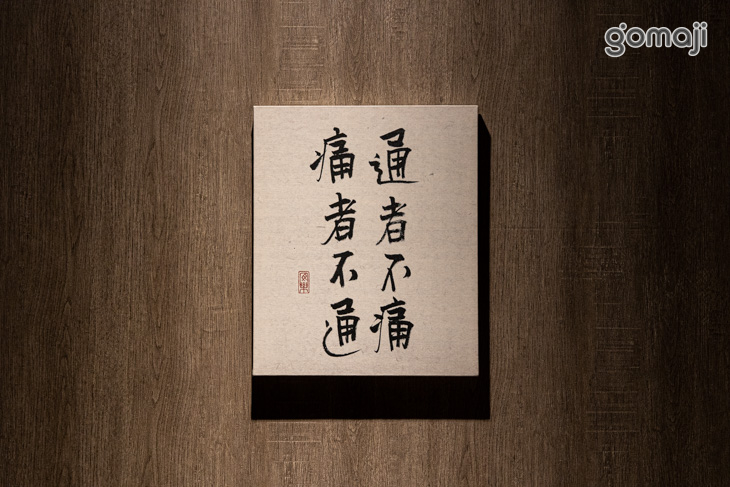 通者不痛
痛者不通
gomaji